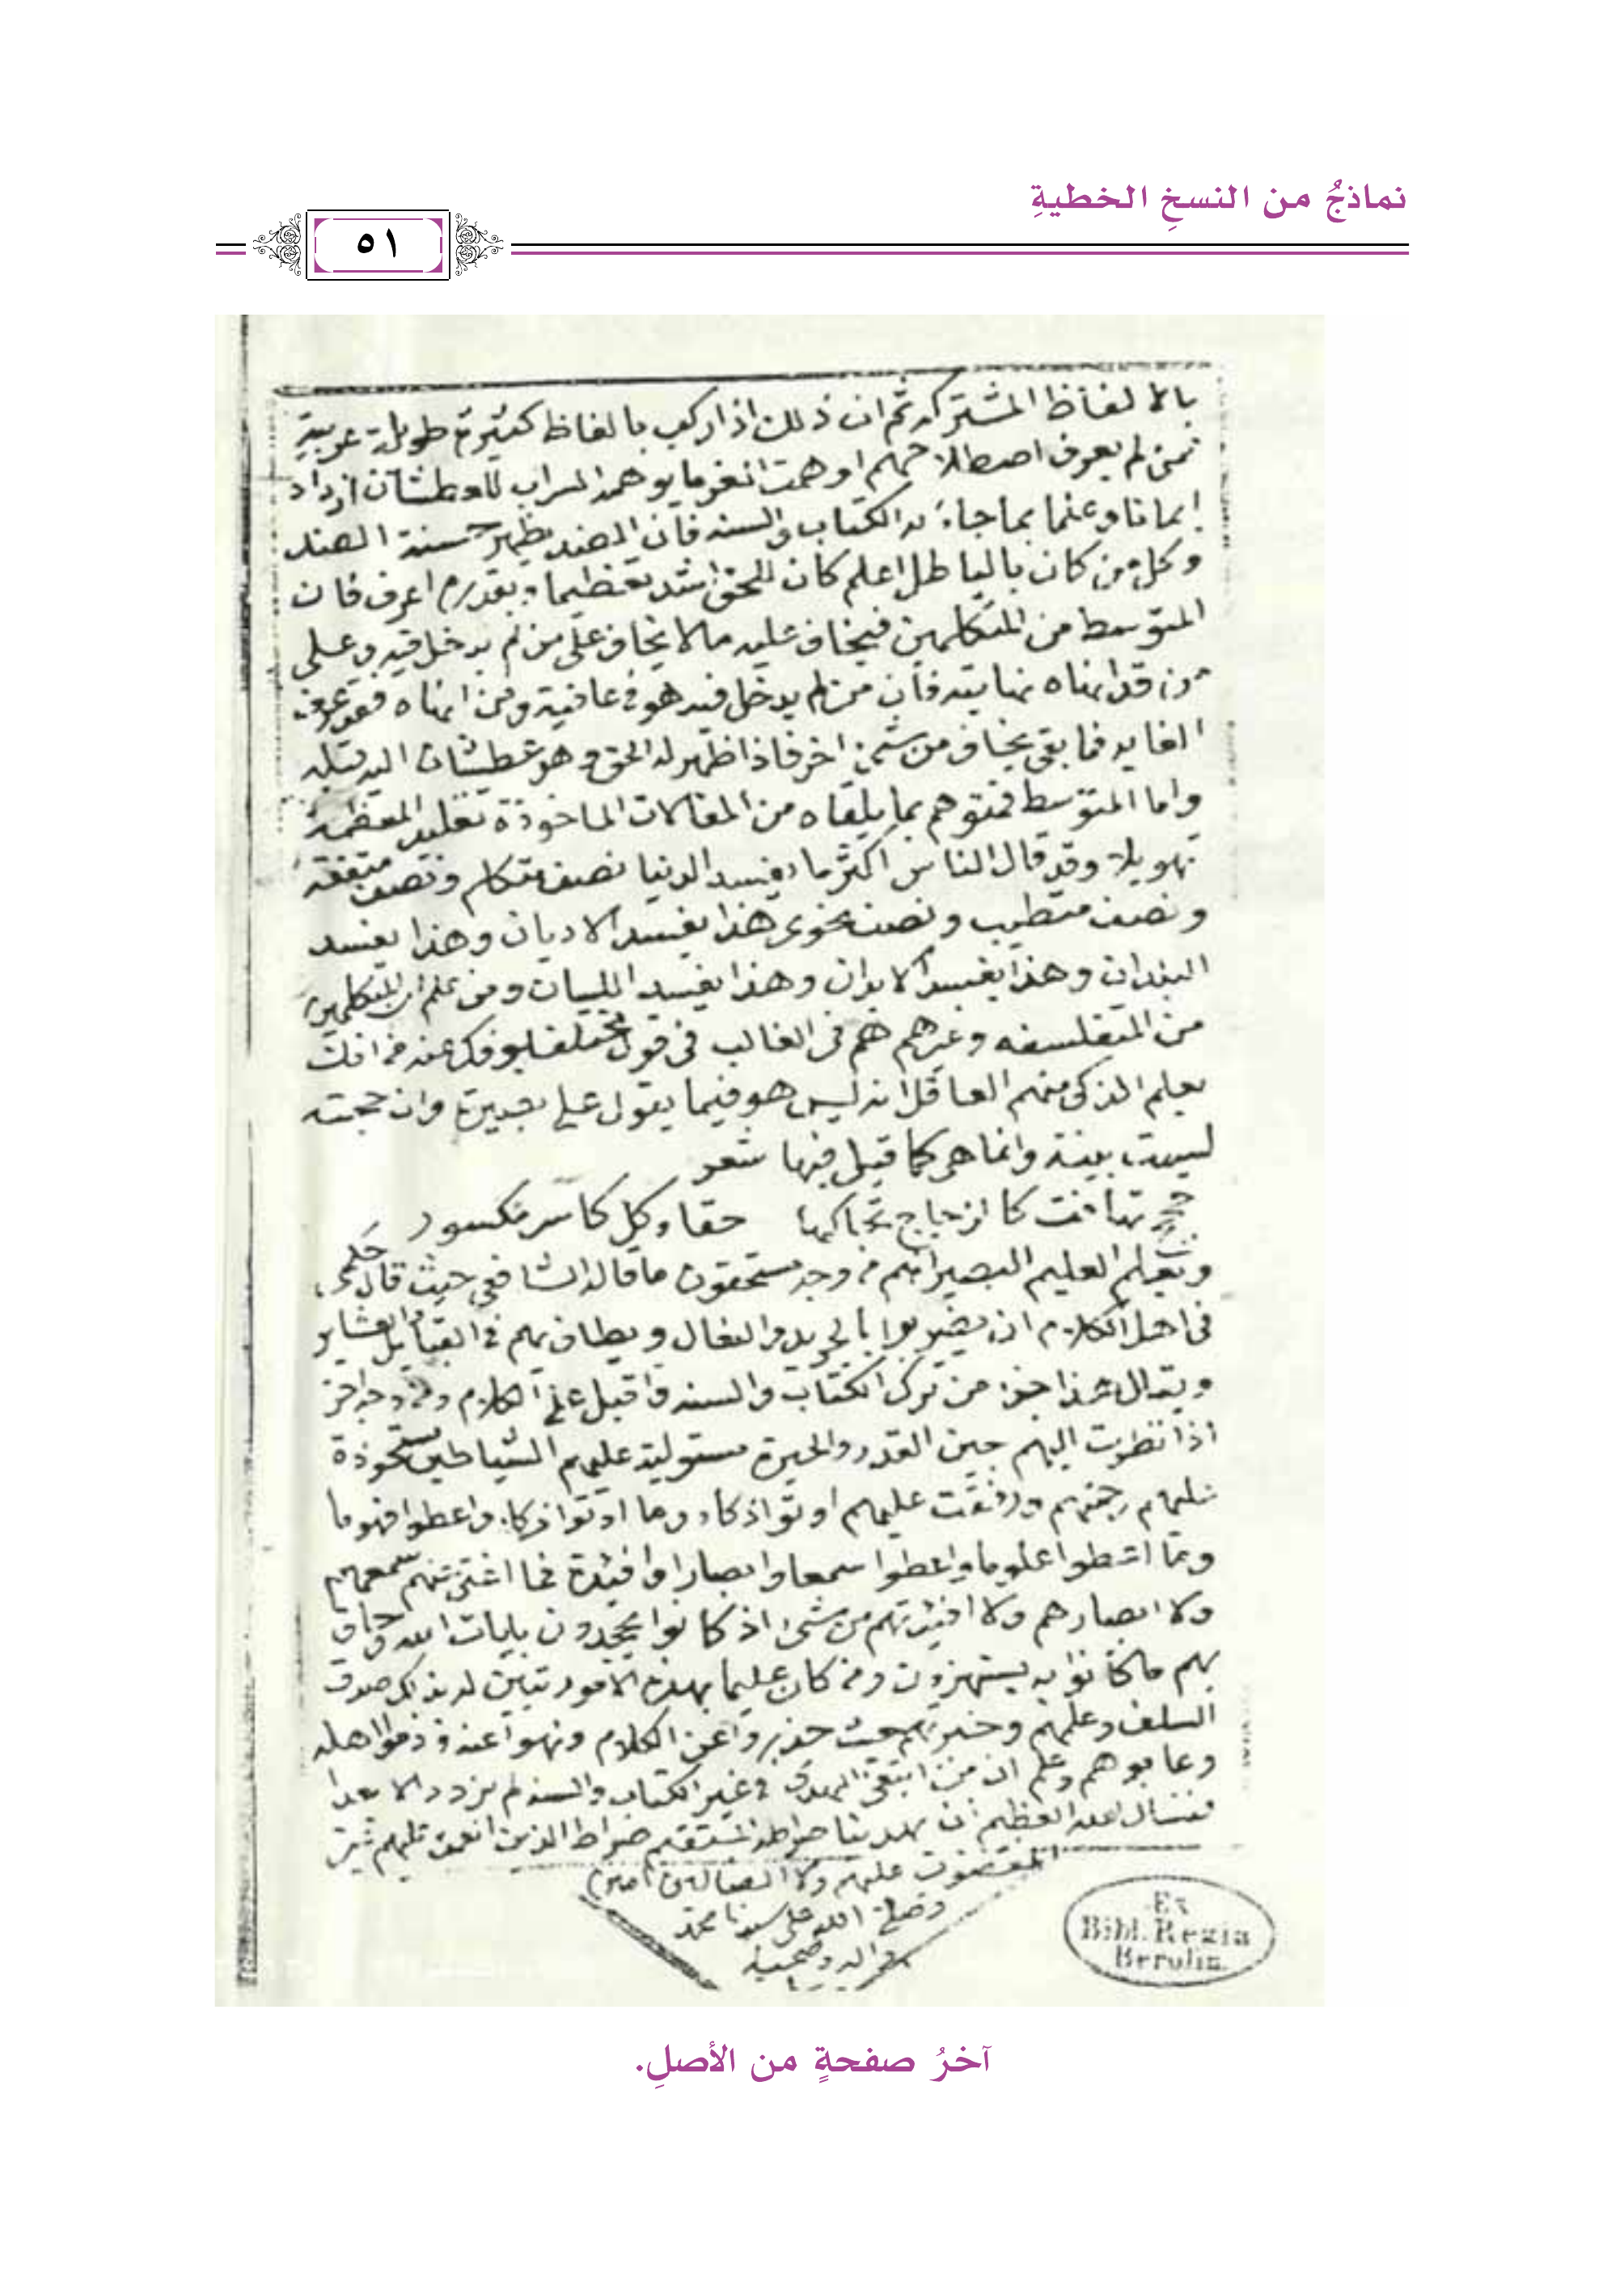 نماذجُ من النسخِ الخطيةِ
٥١
بالالفاظ المشتركه ثم ان ذلك اذا ركب بالفاظ كثيرة طويلة عربية
لمن لم يعرف اصطلاحهم اوهمت الغر ما يوهمه السراب للعطشان ازداد
إيمانا وعلما بما جاء به الكتاب والسنه فان الضد يظهر حسنة الضد
وكل من كان بالباطل اعلم كان للحق اشد تعظيما وبقدره اعرف فان
المتوسط من المتكلمين فيخاف عليه مالا يخاف على من لم يدخل فيه وعلى
من قد انهاه نهايته فان من لم يدخل فيه هو في عافية ومن انهاه فقد عرف
الغايه فما بقي يخاف من شيئ اخر فاذا ظهر له الحق وهو عطشان اليه قبله
واما المتوسط فمتوهم بما يلقاه من المقالات الماخوذة تقليد المعظمة
تهويلا وقد قال الناس اكثر ما يفسد الدنيا نصف متكلم ونصف متفقه
ونصف متطبب ونصف نحوى هذا يفسد الاديان وهذا يفسد
البلدان وهذا يفسد الابدان وهذا يفسد اللسان ومن علم ان المتكلمين
من المتفلسفه وغيرهم هم في الغالب في قول مختلف يوفك عنه من افك
يعلم الذكى منهم العاقل انه ليس هو فيما يقول على بصيرة وان حجته
ليست ببينة وانما هى كما قيل فيها شعر
حجج تهافت كالزجاج تخالها حقا وكل كاسر مكسور
ويعلم العليم البصير انهم من وجه مستحقون ما قاله الشافعى حيث قال حكمى
فى اهل الكلام ان يضربوا بالجريد والنعال ويطاف بهم فى القبايل والعشاير
ويقال هذا جزا من ترك الكتاب والسنه واقبل على الكلام ومن وجه اخر
اذا نظرت اليهم بعين القدر والحيرة مستولية عليهم الشياطين مستحوذة
عليهم رحمتهم ورفقت عليهم اوتوا ذكاء وما اوتوا زكاء واعطوا فهوما
وما اعطوا علوما واعطوا سمعا وابصارا وافئدة فما اغنى عنهم سمعهم
ولا ابصارهم ولا افئدتهم من شىء اذ كانوا يجحدون بايات الله وحاق
بهم ما كانوا به يستهزون ومن كان عليما بهذه الامور تبين له بذلك صدق
السلف وعلمهم وخبرتهم حيث حذروا عن الكلام ونهوا عنه وذموا اهله
وعابوهم وعلم ان من ابتغى الهدى فى غير الكتاب والسنه لم يزدد الا بعدا
فنسال الله العظيم ان يهدينا صراطه المستقيم صراط الذين انعمت عليهم غير
المغضوب عليهم ولا الضالين امين
وصلى الله على سيدنا محمد
واله وصحبه
Ex
Bibl. Regia
Berolin.
آخرُ صفحةٍ من الأصلِ.